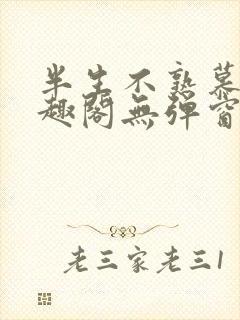 半生不熟慕
趣阁無弹窗
老三家老三1